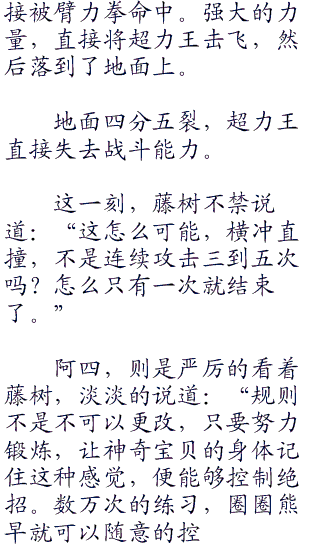 接被臂力拳命中。强大的力
量，直接将超力王击飞，然
后落到了地面上。
地面四分五裂，超力王
直接失去战斗能力。
这一刻，藤树不禁说
道：“这怎么可能，横冲直
撞，不是连续攻击三到五次
吗？怎么只有一次就结束
了。”
阿四，则是严厉的看着
藤树，淡淡的说道：“规则
不是不可以更改，只要努力
锻炼，让神奇宝贝的身体记
住这种感觉，便能够控制绝
招。数万次的练习，圈圈熊
早就可以随意的控